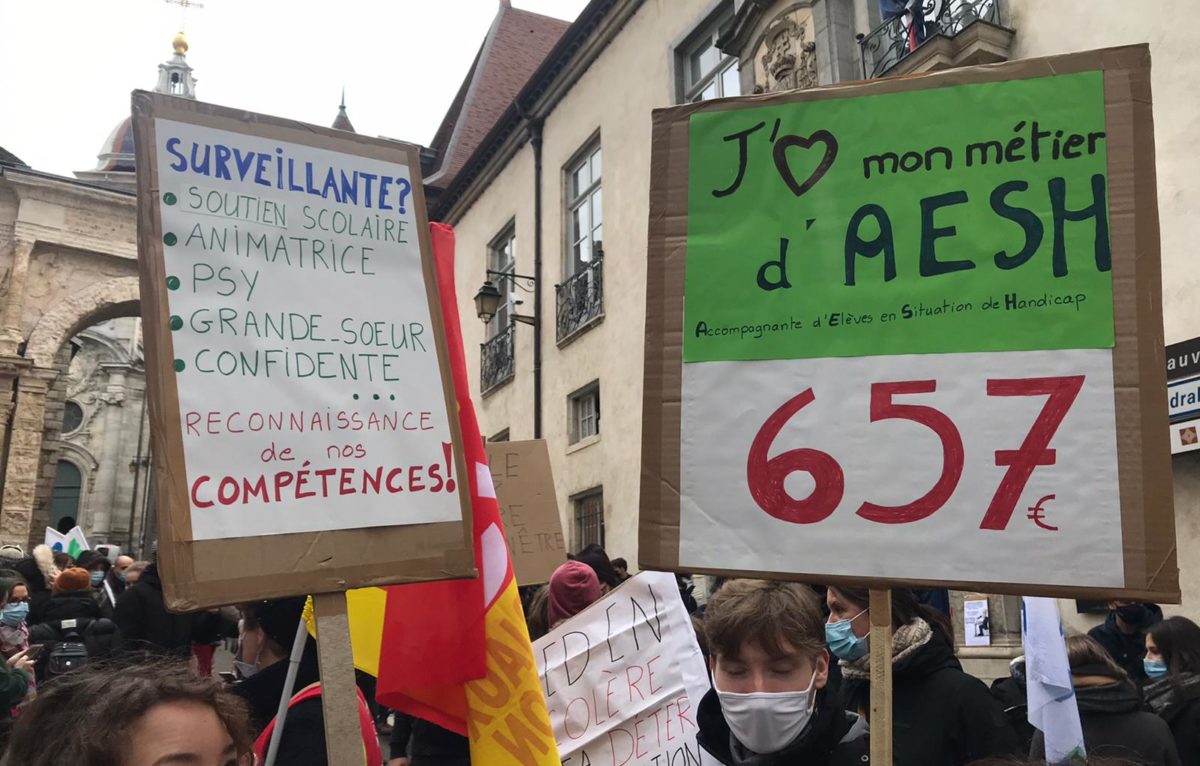 SURVEILLANTE?
• SOUTIEN SCOLAIRE
• ANIMATRICE
• PSY
• GRANDE_SOEUR
• CONFIDENTE
...
RECONNAISSANCE
de nos
COMPÉTENCES!
J'♡ mon métier
d'AESH
Accompagnante d'Elèves en Situation de Handicap
657€
ED EN
COLÈRE
DÉTER